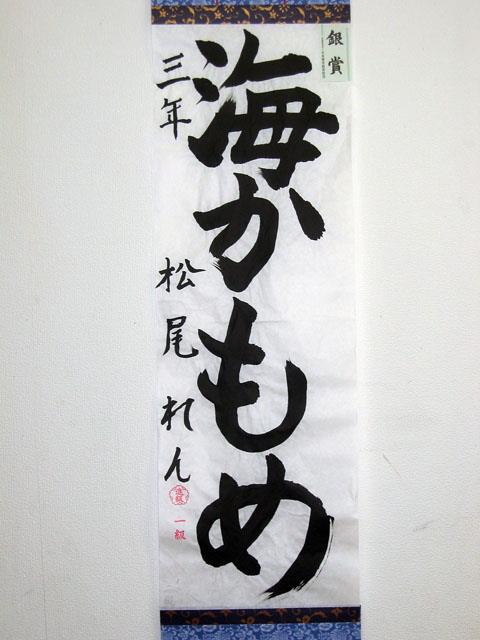 銀賞
海かもめ
三年 松尾れん
進級
一級